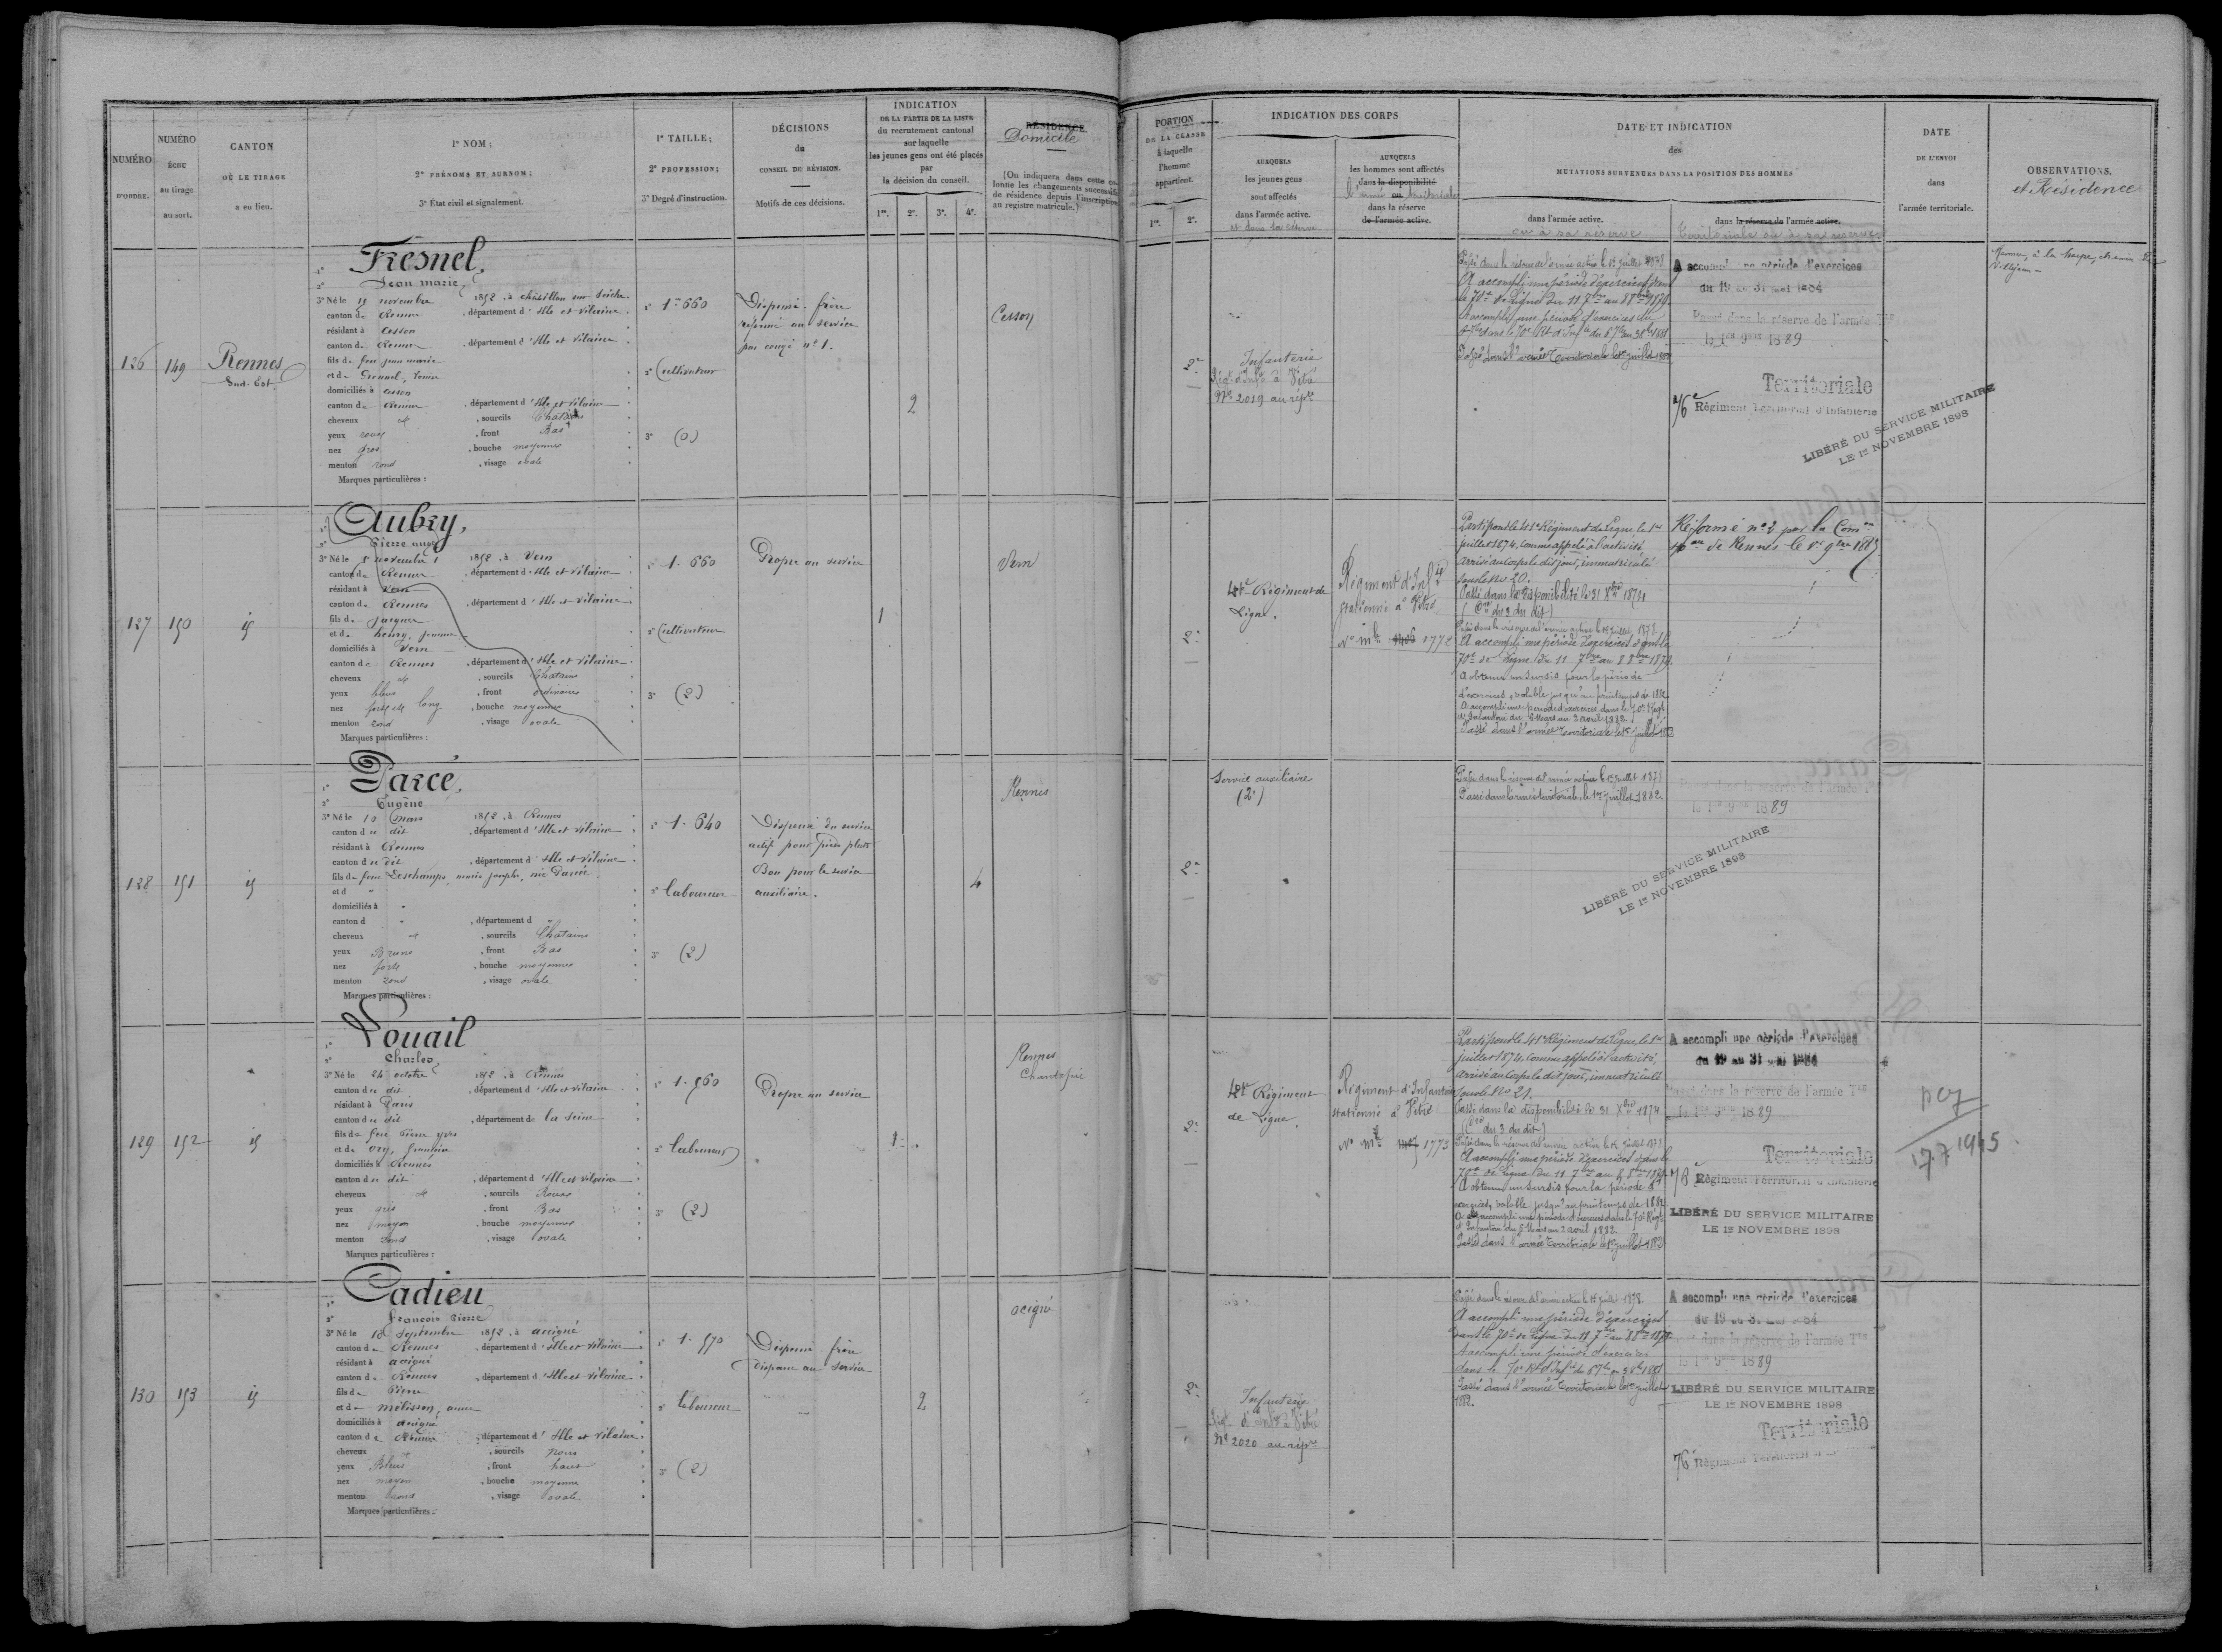 NUMÉRO
D'ORDRE.
NUMÉRO
ÉCHU
au tirage
au sort.
CANTON
OÙ LE TIRAGE
a eu lieu.
1° NOM;
2° PRÉNOMS ET SURNOM;
3° État civil et signalement.
1° TAILLE;
2° PROFESSION;
3° Degré d'instruction.
DÉCISIONS
du
CONSEIL DE RÉVISION.
Motifs de ces décisions.
INDICATION
DE LA PARTIE DE LA LISTE
du recrutement cantonal
sur laquelle
les jeunes gens ont été placés
par
la décision du conseil.
1re. 2e. 3e. 4e.
RÉSIDENCE.
Domicile
(On indiquera dans cette colonne les changements successifs
de résidence depuis l'inscription
au registre matricule.)
PORTION
DE LA CLASSE
à laquelle
l'homme
appartient.
1re. 2e.
INDICATION DES CORPS
AUXQUELS
les jeunes gens
sont affectés
dans l'armée active.
et dans la réserve
AUXQUELS
les hommes sont affectés
dans la disponibilité
ou
dans la réserve
de l'armée active.
DATE ET INDICATION
des
MUTATIONS SURVENUES DANS LA POSITION DES HOMMES
dans l'armée active.
ou à sa réserve
dans la réserve de l'armée active.
Territoriale ou à sa réserve
DATE
DE L'ENVOI
dans
l'armée territoriale.
OBSERVATIONS.
et Résidence
126 149 Rennes
Sud-Est
1° Fresnel,
2° Jean marie
3° Né le 19 novembre 1852, à châtillon sur Seiche
canton de Rennes, département d'Ille et Vilaine
résidant à Cesson
canton de Rennes, département d'Ille et Vilaine
fils de feu jean marie
et de
domiciliés à Cesson
canton de Rennes, département d'Ille et Vilaine
cheveux et, sourcils Chatains
yeux roux, front Bas
nez gros, bouche moyenne
menton rond, visage ovale
Marques particulières :
1° 1m 660
2° Cultivateur
3° (0)
Dispensé. frère
réformé au service
par congé n° 1.
2
Cesson
2e
Infanterie
Régt d'Infie à Vitré
N° 2019 au répre
Passé dans la réserve de l'armée active le 1er juillet 1878
A accompli une période d'exercices dans
le 70e de Ligne du 11 7bre au 8 8bre 1879.
Accompli une période d'exercices
dans le 70e Rt d'Infie
Passé dans l'armée Territoriale le 1er juillet 1882
A accompli une période d'exercices
du 19 au 31 mai 1884
Passé dans la réserve de l'armée Tle
le 1er 9bre 1889
Territoriale
76e Régiment Territorial d'Infanterie
LIBÉRÉ DU SERVICE MILITAIRE
LE 1er NOVEMBRE 1898
Rennes, à la
127 150 id
1° Aubry,
2° Pierre
3° Né le 5 novembre 1852, à Vern
canton de Rennes, département d'Ille et Vilaine
résidant à Vern
canton de Rennes, département d'Ille et Vilaine
fils de jacques
et de henry, jeanne
domiciliés à Vern
canton de Rennes, département d'Ille et Vilaine
cheveux et, sourcils Chatains
yeux bleus, front ordinaire
nez long, bouche moyenne
menton rond, visage ovale
Marques particulières :
1° 1. 660
2° Cultivateur
3° (2)
Propre au service
1
Vern
2e
41e Régiment de
Ligne.
Régiment d'Infie
stationné à Vitré
N° mle 1772
Parti pour le 41e Régiment de Ligne le 1er
juillet 1874, comme appelé à l'activité,
arrivé au corps le dit jour, immatriculé
sous le No 20.
Passé dans la disponibilité le 31 Xbre 1874
(Cre du 3 du dit)
Passé dans la réserve de l'armée active le 1er juillet 1878
A accompli une période d'exercices dans le
70e de Ligne du 11 7bre au 8 8bre 1879.
A obtenu un sursis pour la période
d'exercices, valable jusqu'au printemps de 1882
A accompli une période d'exercices dans le 70e Régt
d'Infanterie du 6 Mars au 2 avril 1882.
Passé dans l'armée Territoriale le 1er juillet 1882
Réformé n° 2 par la Comon
spale de Rennes le
128 151 id
1° Parcé,
2° Eugène
3° Né le 10 Mars 1852, à Rennes
canton du dit, département d'Ille et Vilaine
résidant à Rennes
canton du dit, département d'Ille et Vilaine
fils de feue Deschamps, marie josephe,
et d "
domiciliés à "
canton d ", département d "
cheveux et, sourcils Chatains
yeux Bruns, front Bas
nez forte, bouche moyenne
menton rond, visage ovale
Marques particulières :
1° 1. 640
2° laboureur
3° (2)
Dispensé du service
actif pour pieds plats
Bon pour le service
auxiliaire.
4
Rennes
2e
Service auxiliaire
(2e)
Passé dans la réserve de l'armée active le 1er juillet 1878
Passé dans l'armée territoriale, le 1er juillet 1882
Passé dans la réserve de l'armée Tle
le 1er 9bre 1889
LIBÉRÉ DU SERVICE MILITAIRE
LE 1er NOVEMBRE 1898
129 152 id
1° Louail
2° Charles
3° Né le 24 octobre 1852, à Rennes
canton du dit, département d'Ille et Vilaine
résidant à Paris
canton du dit, département de la Seine
fils de feu Pierre yves
et de Ory,
domiciliés à Rennes
canton du dit, département d'Ille et Vilaine
cheveux et, sourcils Roux
yeux gris, front Bas
nez moyen, bouche moyenne
menton rond, visage ovale
Marques particulières :
1° 1. 560
2° laboureur
3° (2)
Propre au service
1
Rennes
Chantepie
2e
41e Régiment
de Ligne.
Régiment d'Infanterie
stationné à Vitré
N° mle 1773
Parti pour le 41e Régiment de Ligne le 1er
juillet 1874, comme appelé à l'activité,
arrivé au corps le dit jour, immatriculé
sous le No 21.
Passé dans la disponibilité le 31 Xbre 1874
(Cre du 3 du dit)
Passé dans la réserve de l'armée active le 1er juillet 1878
A accompli une période d'exercices dans le
70e de Ligne du 11 7bre au 8 8bre 1879
A obtenu un sursis pour la période d'
exercices, valable jusqu'au printemps de 1882
A accompli une période d'exercices dans le 70e Régt
d'Infanterie du 6 Mars au 2 avril 1882.
Passé dans l'armée Territoriale le 1er juillet 1882
A accompli une période d'exercices
du 19 au 31 mai 1884
Passé dans la réserve de l'armée Tle
le 1er 9bre 1889
Territoriale
76e Régiment Territorial d'Infanterie
LIBÉRÉ DU SERVICE MILITAIRE
LE 1er NOVEMBRE 1898
17.7 1945
130 153 id
1° Cadieu
2° françois Pierre
3° Né le 18 Septembre 1852, à accigné
canton de Rennes, département d'Ille et Vilaine
résidant à accigné
canton de Rennes, département d'Ille et Vilaine
fils de Pierre
et de mélisson, anne
domiciliés à accigné
canton de Rennes, département d'Ille et Vilaine
cheveux et, sourcils noirs
yeux Bleus, front haut
nez moyen, bouche moyenne
menton rond, visage ovale
Marques particulières :
1° 1. 570
2° laboureur
3° (2)
Dispensé. frère
dispensé au service
2
acigné
2e
Infanterie
Régt d'Infie à Vitré
N° 2020 au répre
Passé dans la réserve de l'armée active le 1er juillet 1878.
A accompli une période d'exercices
dans le 70e de Ligne du 11 7bre au 8 8bre 1879
Accompli une période d'exercices
dans le 70e Rt d'Infie
Passé dans l'armée Territoriale le 1er juillet
1882.
A accompli une période d'exercices
du 19 au 31 mai 1884
Passé dans la réserve de l'armée Tle
le 1er 9bre 1889
LIBÉRÉ DU SERVICE MILITAIRE
LE 1er NOVEMBRE 1898
Territoriale
76e Régiment Territorial d'